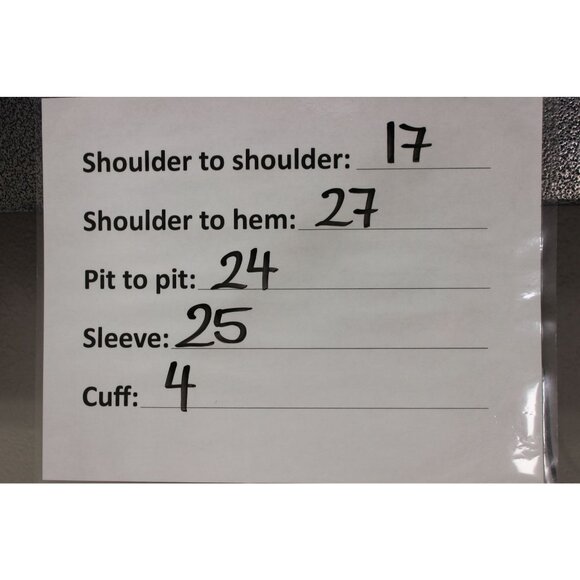 Shoulder to shoulder: 17
Shoulder to hem: 27
Pit to pit: 24
Sleeve: 25
Cuff: 4